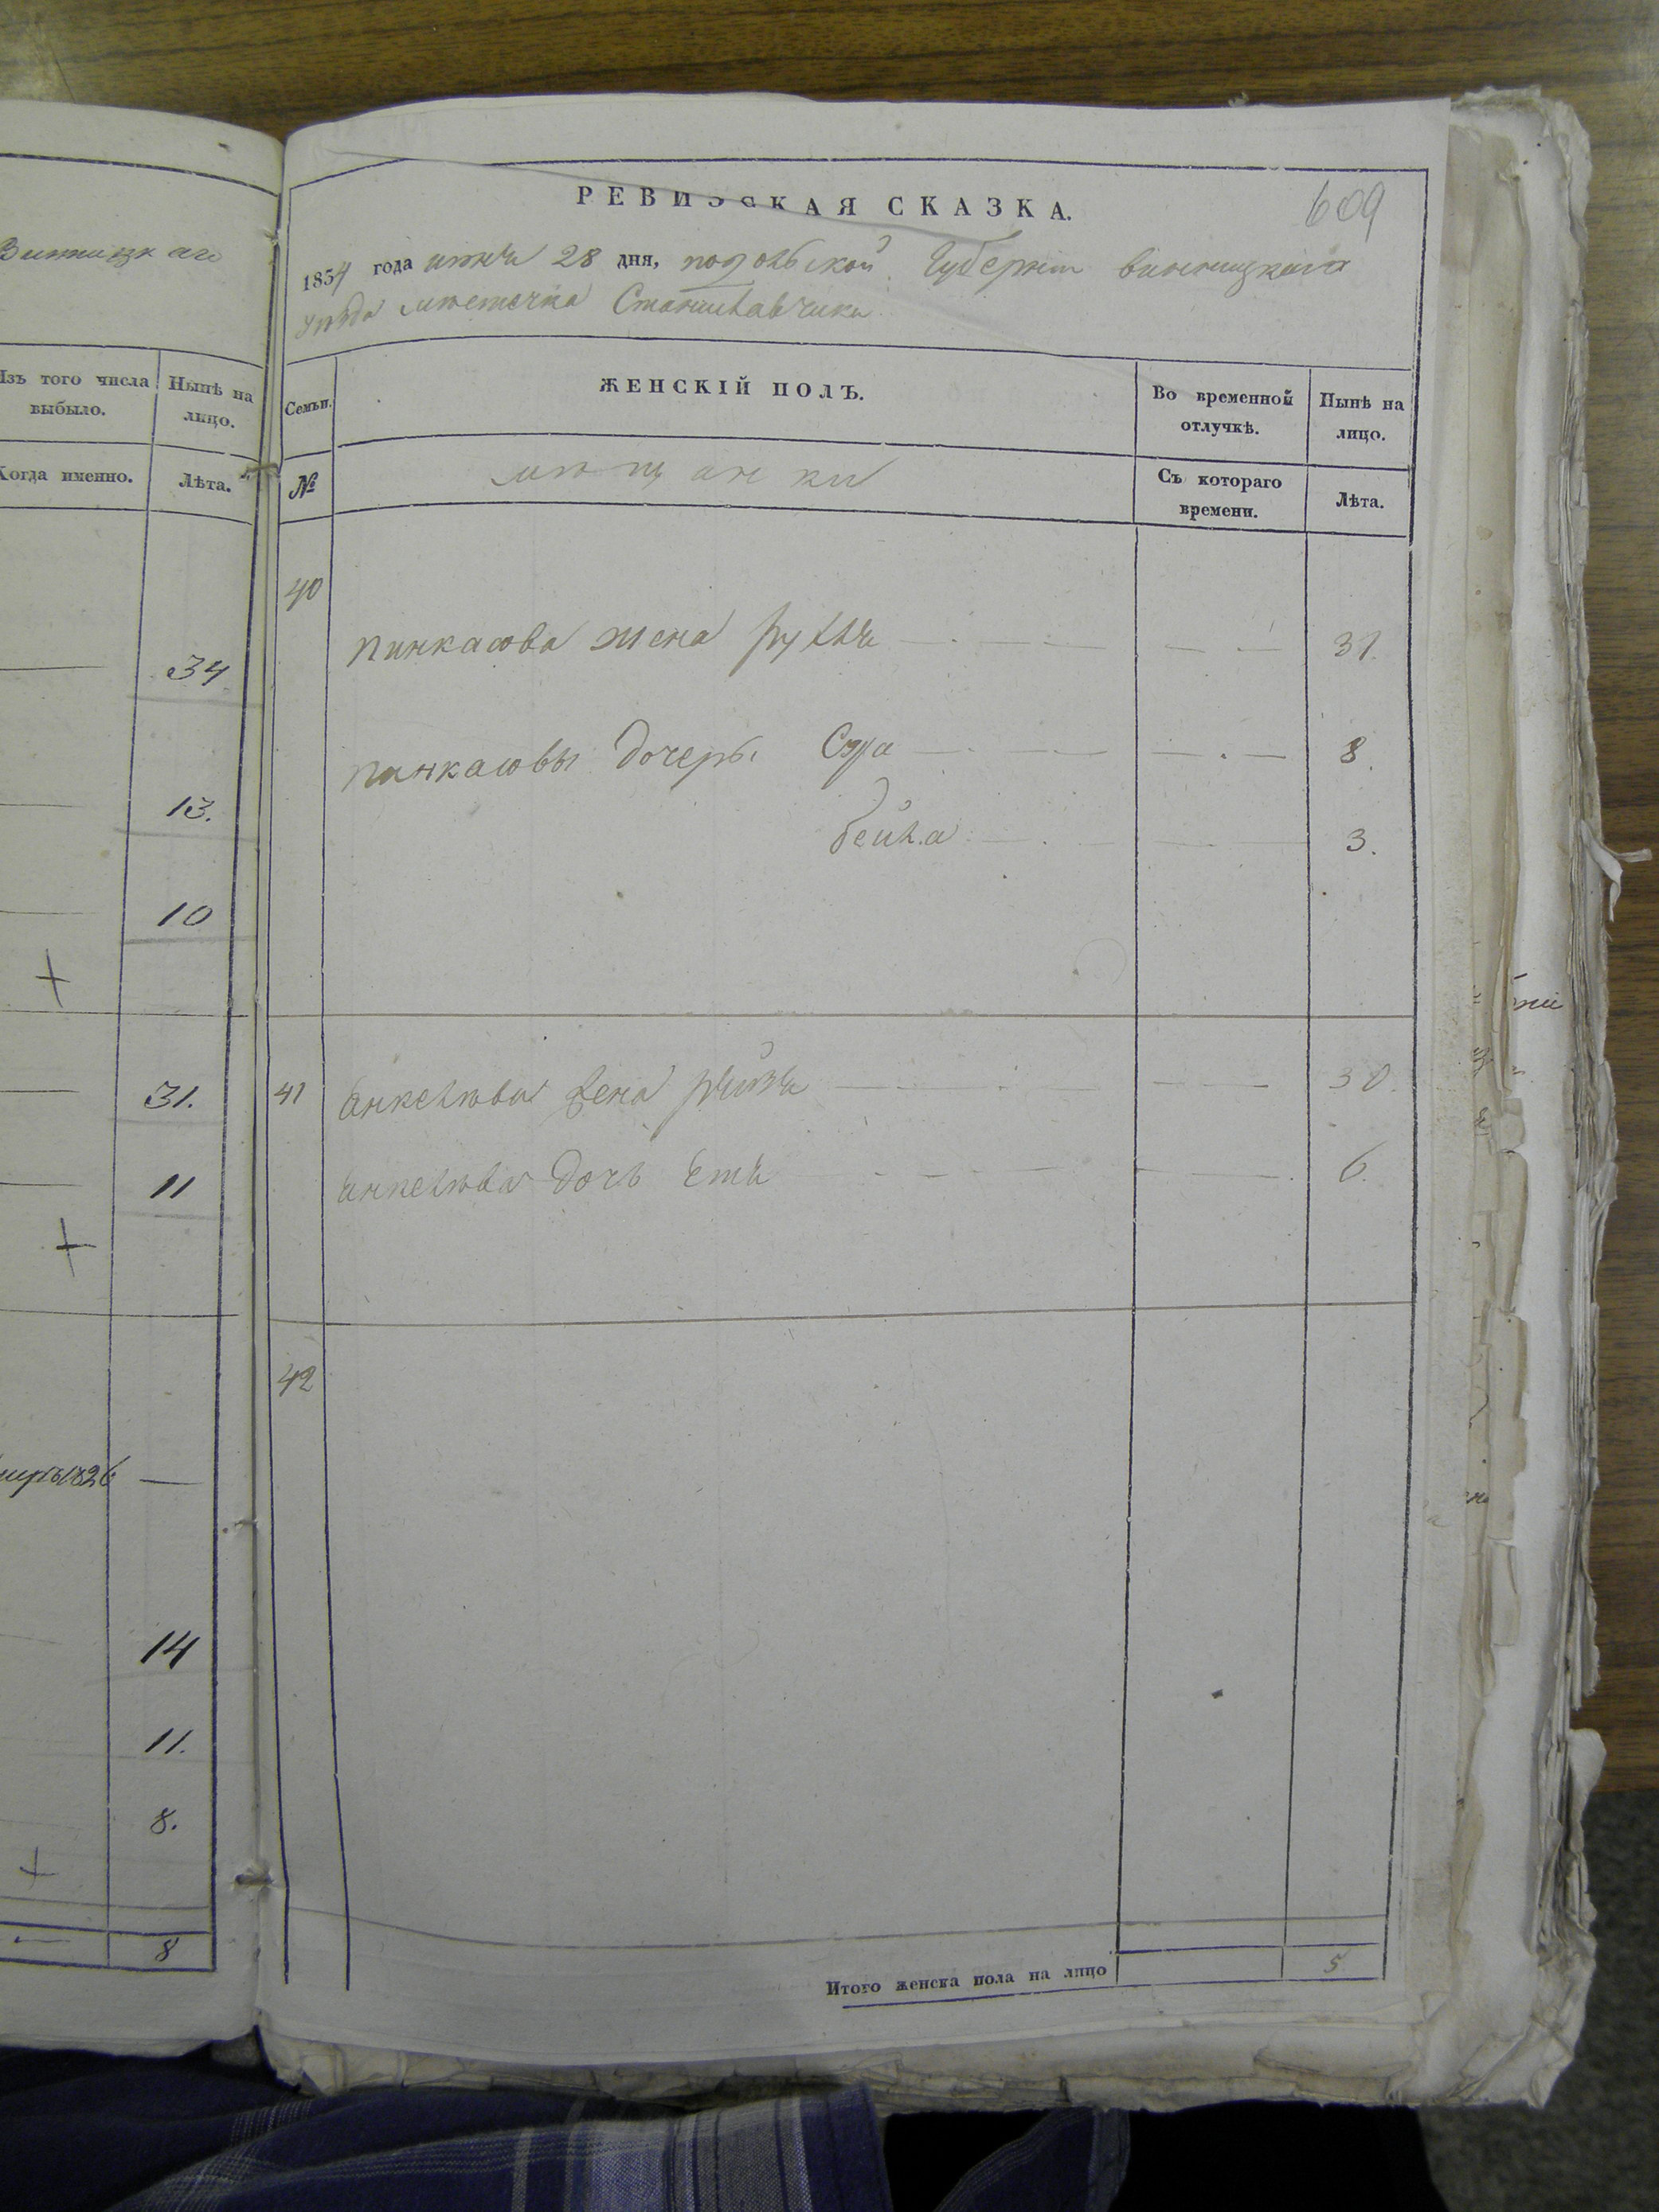 Виницкаго
Изъ того числа выбыло.
Нынѣ на лицо.
Когда именно.
Лѣта.
34
13.
10
31.
11
1826
14
11.
8.
8
609
РЕВИЗСКАЯ СКАЗКА.
1854 года июня 28 дня, подольской Губернии винницкаго
уѣзда мѣстечка Станиславчика
Семьи.
ЖЕНСКІЙ ПОЛЪ.
Во временной отлучкѣ.
Нынѣ на лицо.
№
мѣщанки
Съ котораго времени.
Лѣта.
40
пинкасова жена рухля 31.
пинкасовы дочеры Сура 8.
бейла 3.
41 анкелюва жена 30.
анкелюва дочь етя 6.
42
Итого женска пола на лицо 5